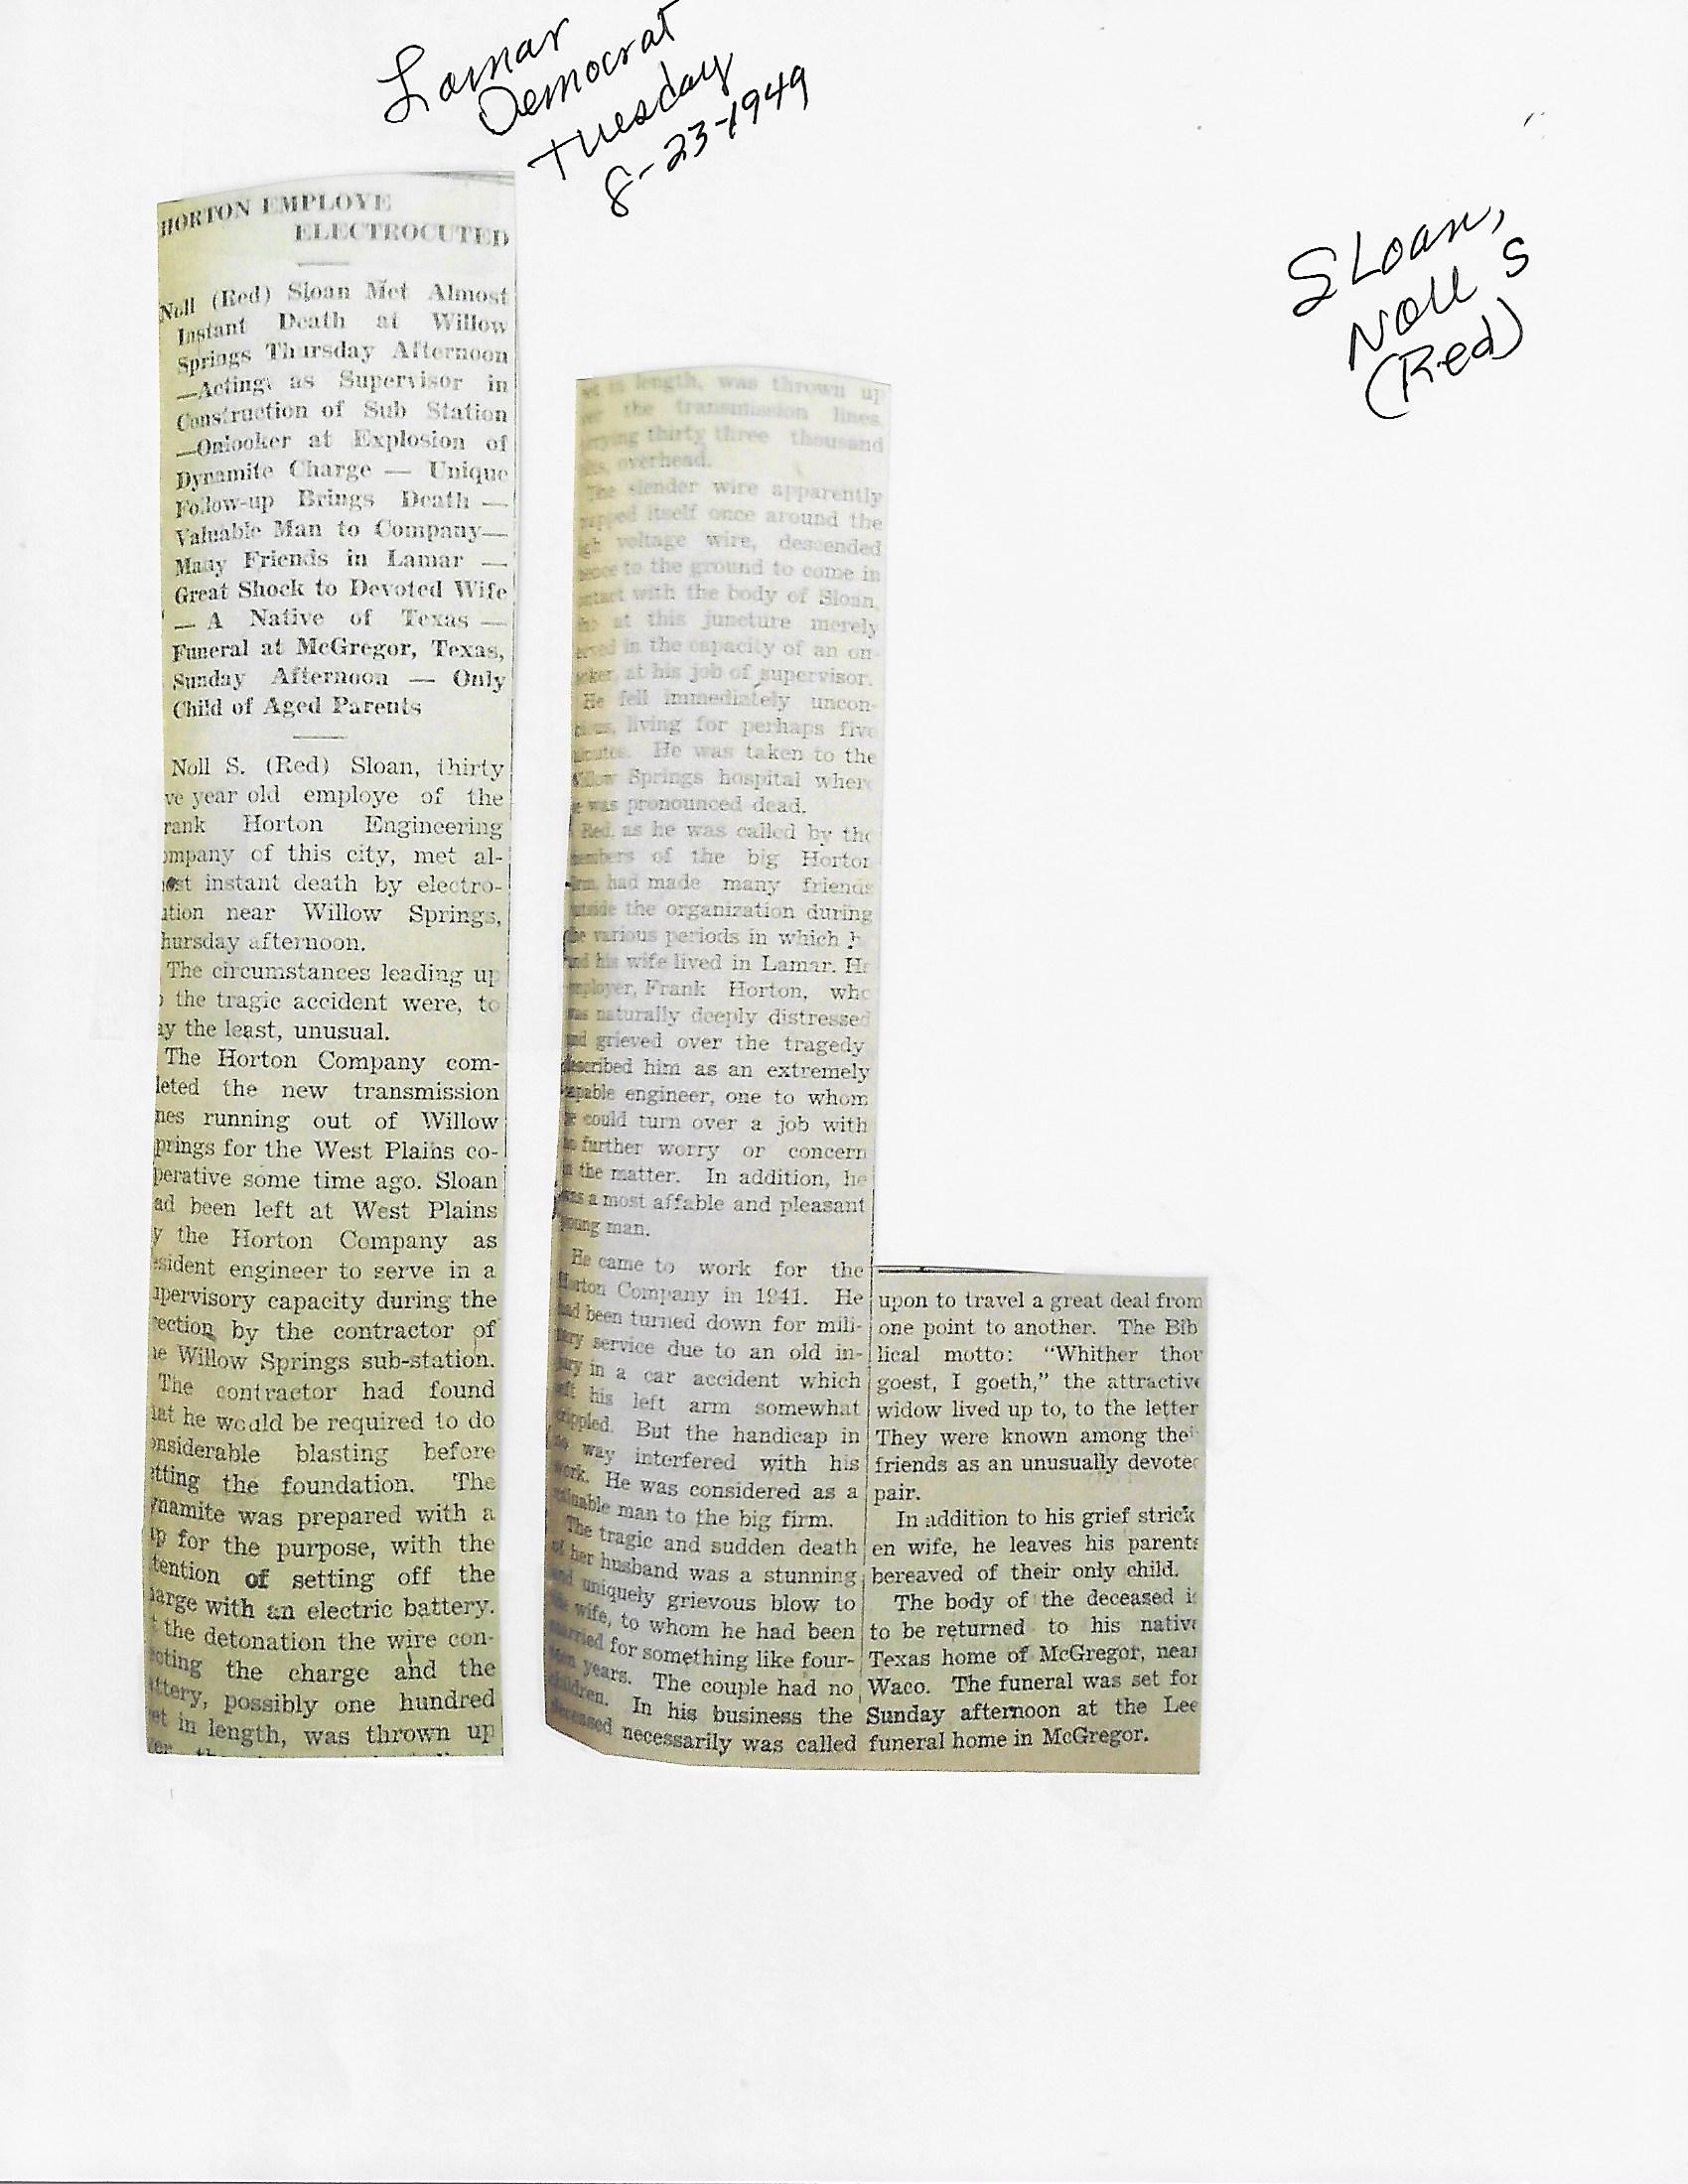 Lamar
Democrat
Tuesday
8-23-1949
Sloan,
Noll S
(Red)
HORTON EMPLOYE
ELECTROCUTED
Noll (Red) Sloan Met Almost
Instant Death at Willow
Springs Thursday Afternoon
—Acting as Supervisor in
Construction of Sub Station
—Onlooker at Explosion of
Dynamite Charge — Unique
Follow-up Brings Death —
Valuable Man to Company—
Many Friends in Lamar —
Great Shock to Devoted Wife
— A Native of Texas —
Funeral at McGregor, Texas,
Sunday Afternoon — Only
Child of Aged Parents
Noll S. (Red) Sloan, thirty
ve year old employe of the
rank Horton Engineering
ompany of this city, met al-
ost instant death by electro-
ution near Willow Springs,
hursday afternoon.
The circumstances leading up
o the tragic accident were, to
ay the least, unusual.
The Horton Company com-
leted the new transmission
nes running out of Willow
prings for the West Plains co-
perative some time ago. Sloan
ad been left at West Plains
y the Horton Company as
esident engineer to serve in a
upervisory capacity during the
rection by the contractor of
he Willow Springs sub-station.
The contractor had found
hat he would be required to do
onsiderable blasting before
etting the foundation. The
ynamite was prepared with a
ap for the purpose, with the
tention of setting off the
harge with an electric battery.
t the detonation the wire con-
ecting the charge and the
attery, possibly one hundred
et in length, was thrown up
et in length, was thrown up
er the transmission lines,
rrying thirty three thousand
lts, overhead.
The slender wire apparently
rapped itself once around the
igh voltage wire, descended
hence to the ground to come in
ontact with the body of Sloan,
ho at this juncture merely
erved in the capacity of an on-
oker, at his job of supervisor.
He fell immediately uncon-
cious, living for perhaps five
inutes. He was taken to the
Willow Springs hospital where
e was pronounced dead.
Red, as he was called by the
members of the big Horton
firm, had made many friends
outside the organization during
the various periods in which h
and his wife lived in Lamar. He
employer, Frank Horton, who
was naturally deeply distressed
and grieved over the tragedy
described him as an extremely
capable engineer, one to whom
he could turn over a job with
no further worry or concern
in the matter. In addition, he
was a most affable and pleasant
young man.
He came to work for the
Horton Company in 1941. He
had been turned down for mili-
tary service due to an old in-
jury in a car accident which
left his left arm somewhat
crippled. But the handicap in
no way interfered with his
work. He was considered as a
valuable man to the big firm.
The tragic and sudden death
of her husband was a stunning
and uniquely grievous blow to
the wife, to whom he had been
married for something like four-
teen years. The couple had no
children. In his business the
deceased necessarily was called
upon to travel a great deal from
one point to another. The Bib
lical motto: "Whither thou
goest, I goeth," the attractive
widow lived up to, to the letter
They were known among thei
friends as an unusually devoted
pair.
In addition to his grief strick
en wife, he leaves his parents
bereaved of their only child.
The body of the deceased is
to be returned to his native
Texas home of McGregor, near
Waco. The funeral was set for
Sunday afternoon at the Lee
funeral home in McGregor.